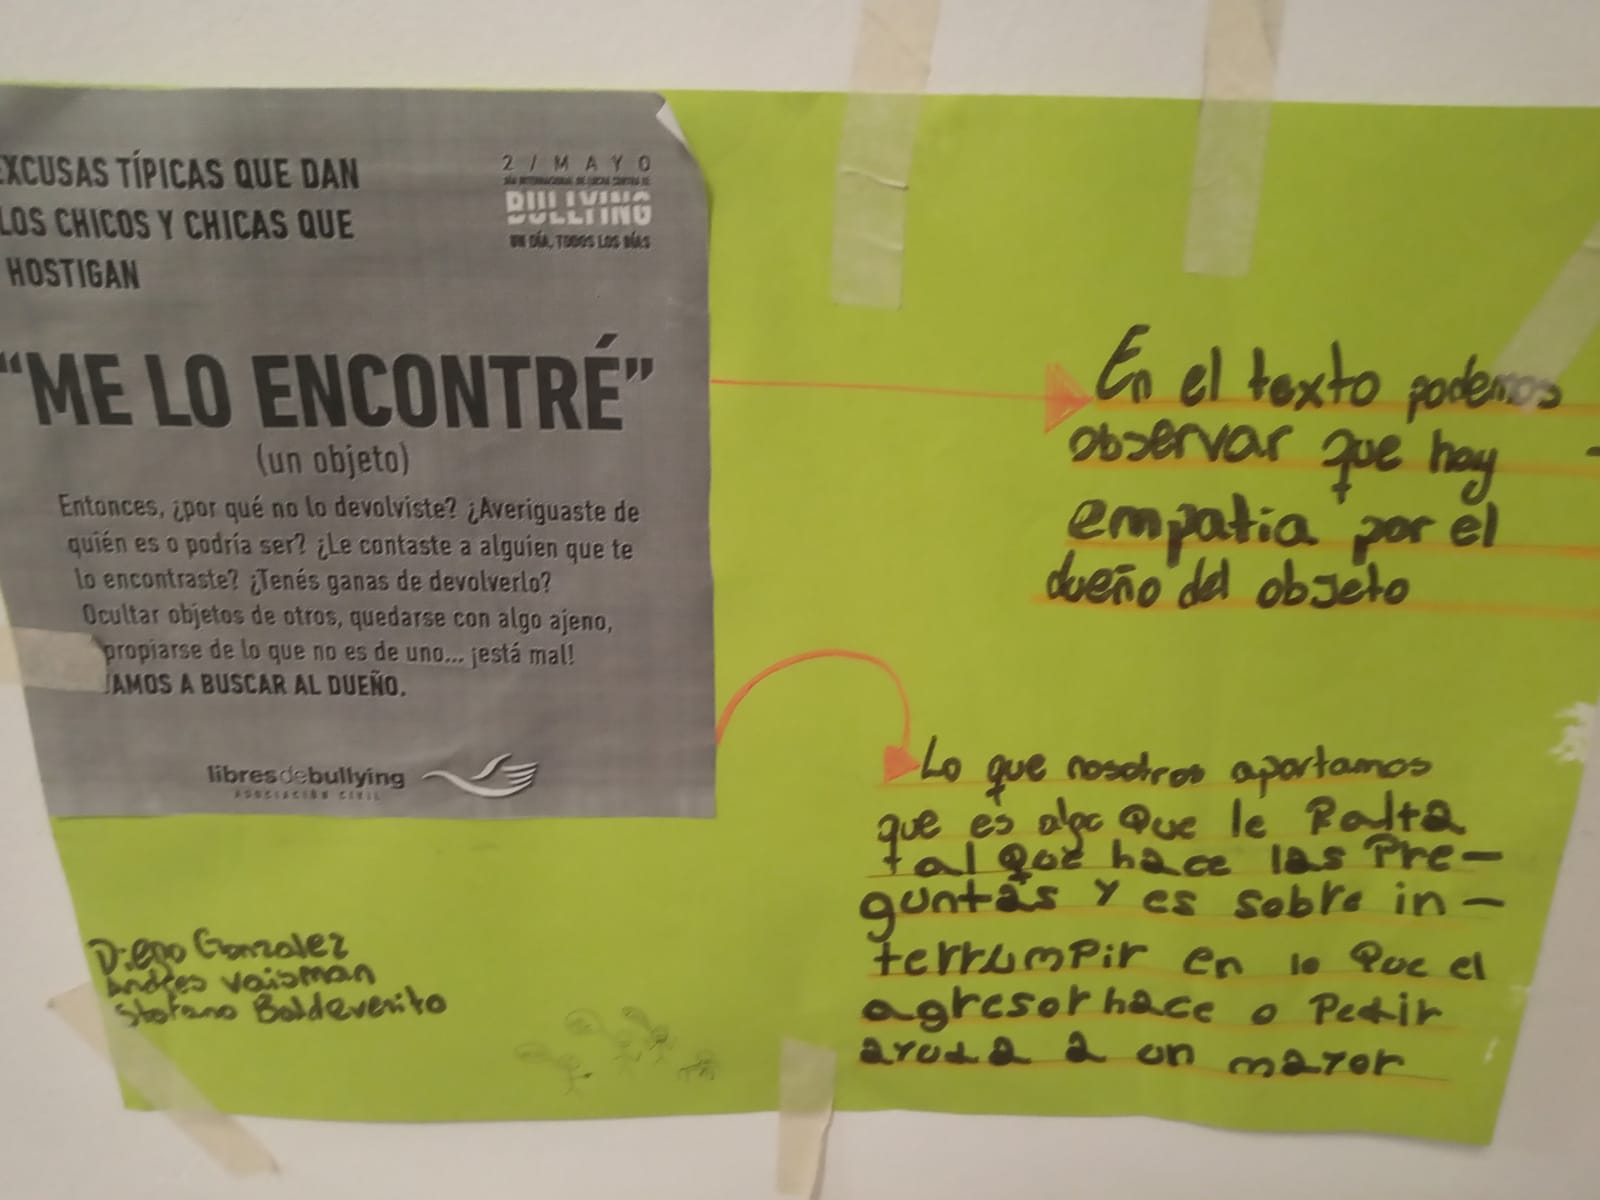 EXCUSAS TÍPICAS QUE DAN
LOS CHICOS Y CHICAS QUE
HOSTIGAN
2 / MAYO
DÍA INTERNACIONAL DE LUCHA CONTRA EL
BULLYING
UN DÍA, TODOS LOS DÍAS
“ME LO ENCONTRÉ”
(un objeto)
Entonces, ¿por qué no lo devolviste? ¿Averiguaste de
quién es o podría ser? ¿Le contaste a alguien que te
lo encontraste? ¿Tenés ganas de devolverlo?
Ocultar objetos de otros, quedarse con algo ajeno,
propiarse de lo que no es de uno... ¡está mal!
AMOS A BUSCAR AL DUEÑO.
libresdebullying
ASOCIACIÓN CIVIL
En el texto podemos
observar que hay
empatia por el
dueño del objeto
Lo que nosotros aportamos
que es algo que le Falta
al que hace las Pre-
guntas y es sobre in-
terrumpir en lo que el
agresor hace o Pedir
ayuda a un mayor
Diego Gonzalez
Andres Vaisman
Stefano Baldevenito